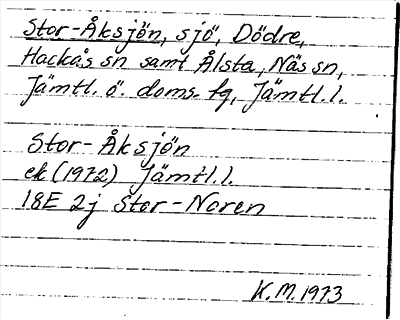 Stor-Åksjön, sjö, Dödre,
Hackås sn samt Ålsta, Näs sn,
Jämtl. ö. doms. fq, Jämtl. l.
Stor-Åksjön
ek (1972) Jämtl. l.
18E 2j Stor-Noren
K.M. 1973